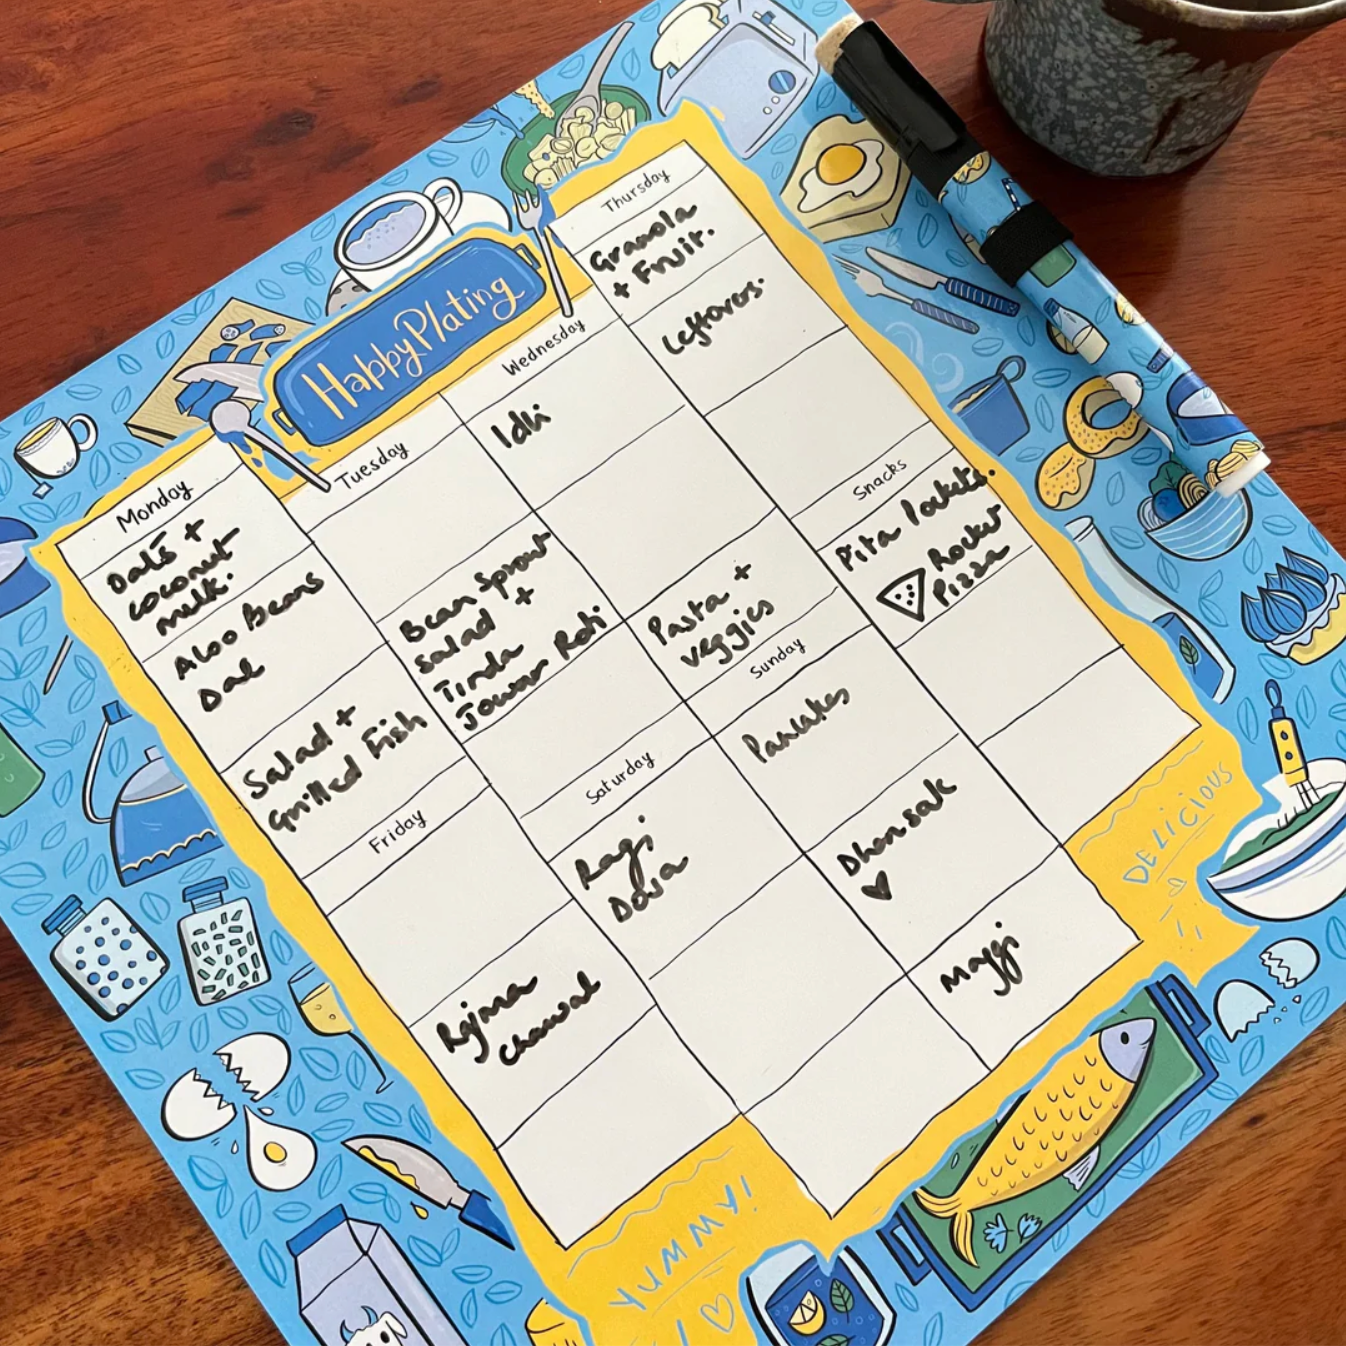 HappyPlating
Monday
Oats +
coconut
milk.
Aloo Beans
Dal
Salad +
Grilled Fish
Tuesday
Bean Sprout
salad +
Tinda
Jowar Roti
Wednesday
Idli
Pasta +
veggies
Thursday
Granola
+ Fruit.
Leftovers.
Friday
Rajma
Chawal
Saturday
Ragi
Dosa
Sunday
Pancakes
Dhansak
Maggi
Snacks
Pita Pockets.
Rocket
Pizza
DELICIOUS
YUMMY!